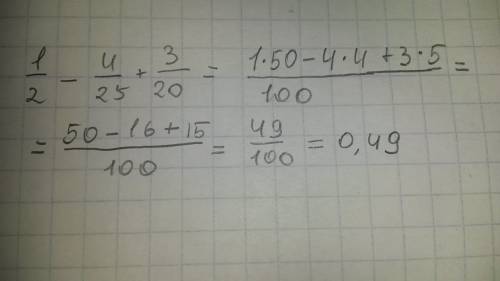 1/2 - 4/25 + 3/20 = (1·50 - 4·4 + 3·5)/100 =
= (50 - 16 + 15)/100 = 49/100 = 0,49